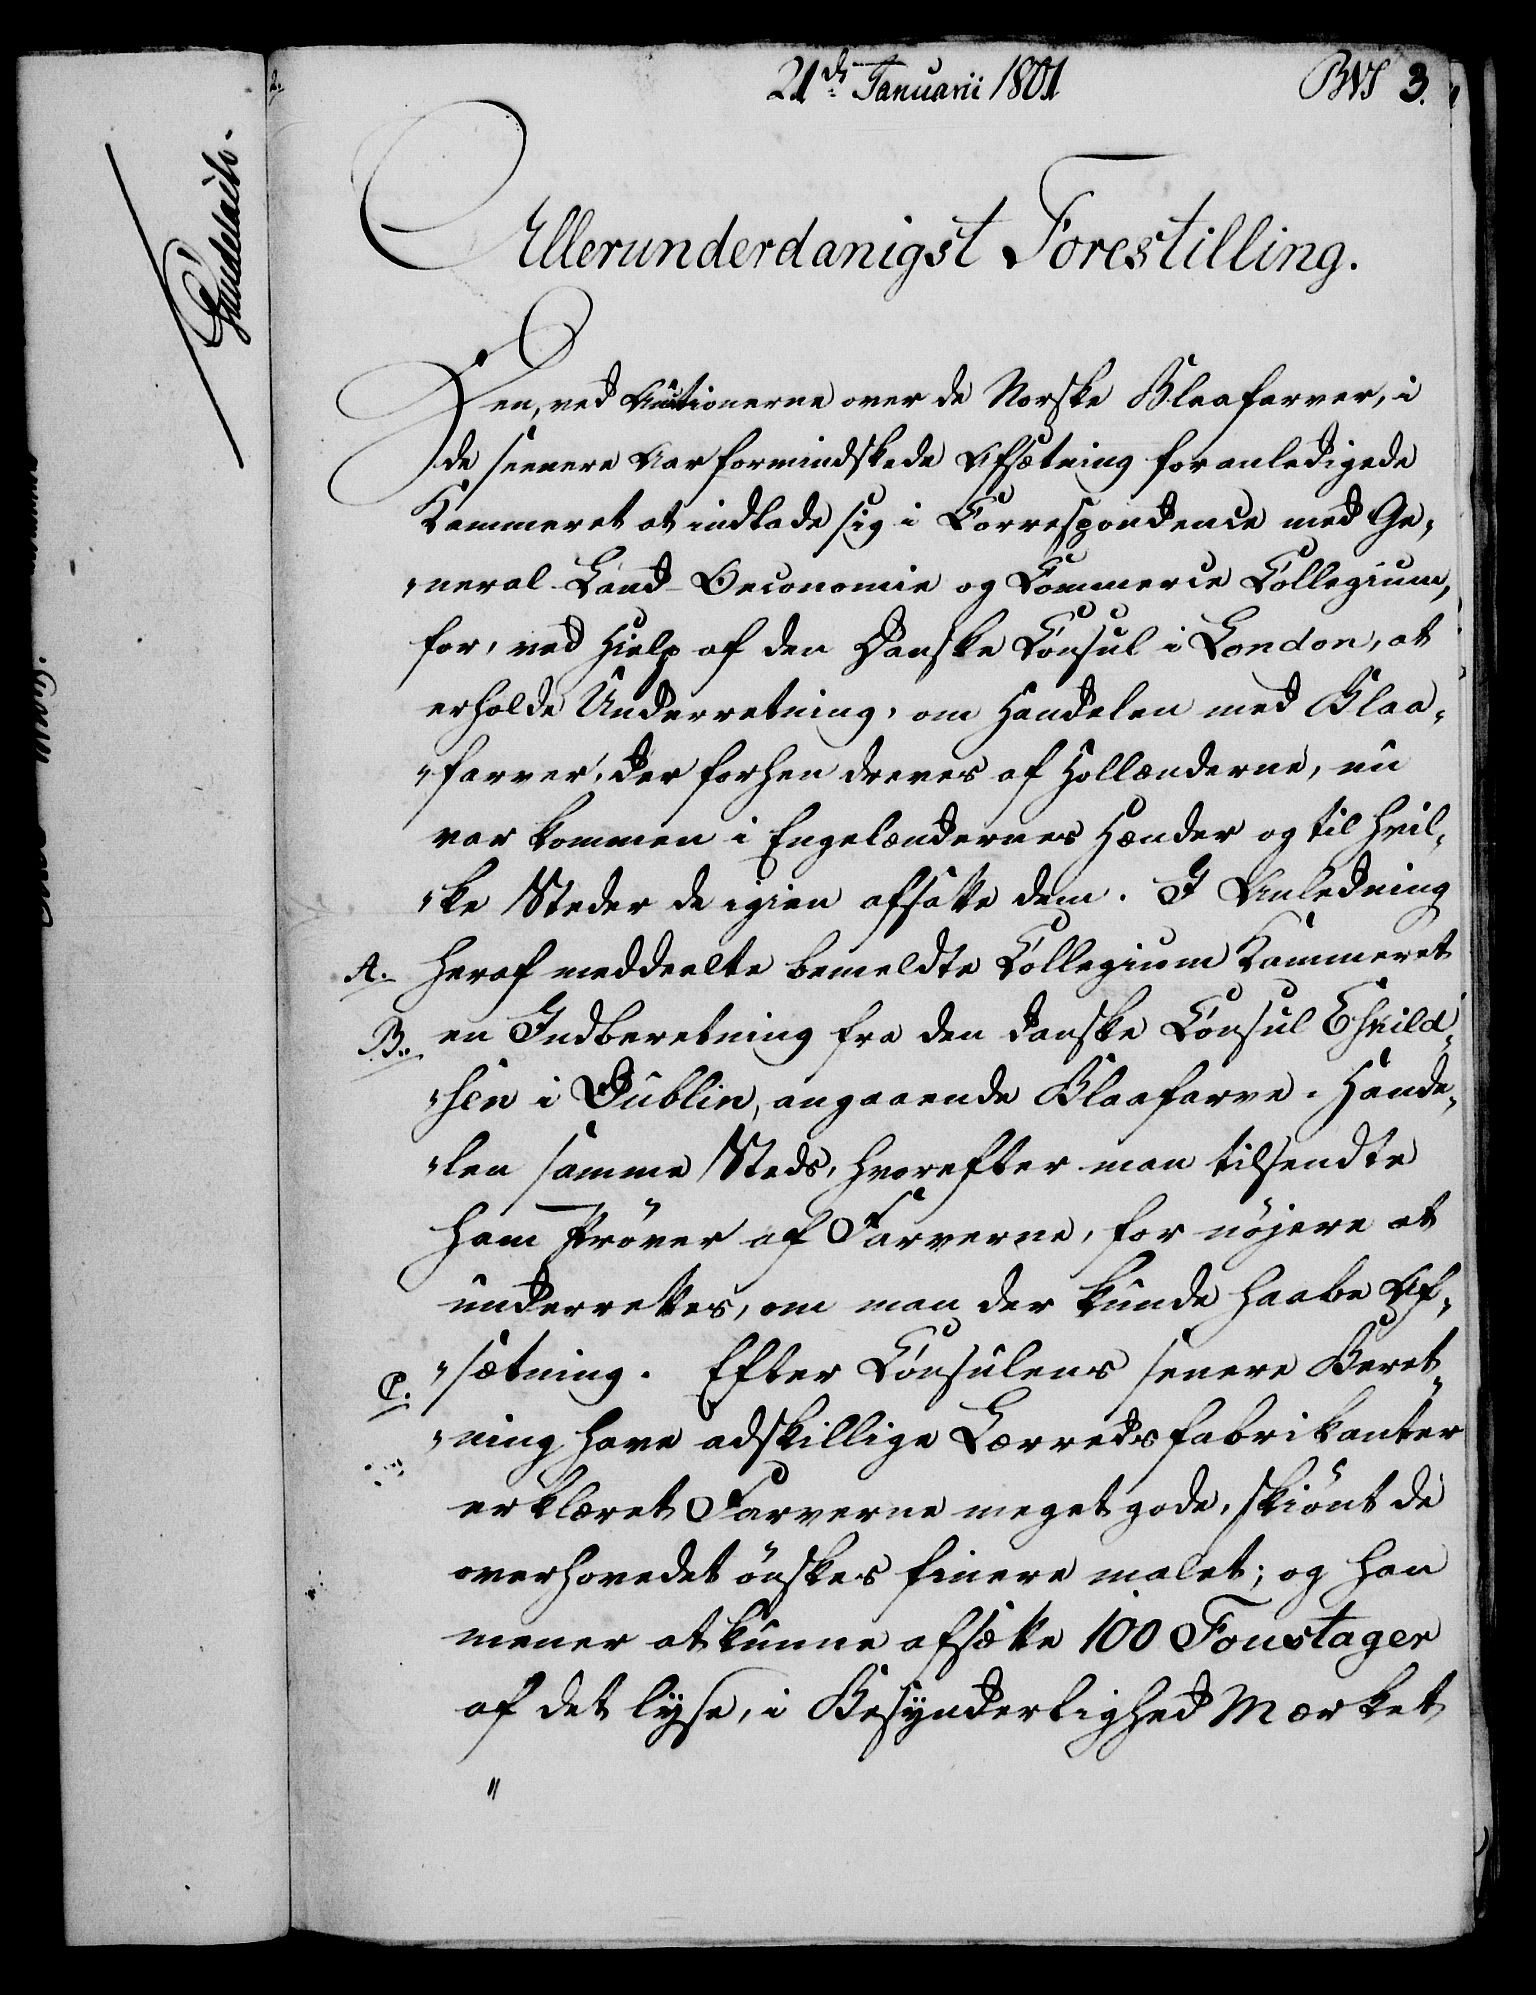 21de Januarii 1801
BVS 3.
Allerunderdanigst Forestilling.
Den, ved Auctionerne over de Norske Blaafarver, i
de seenere Aar formindskede Afsætning foranledigede
Kammeret at indlade sig i Correspondence med Ge„
„neral-Land-Oeconomie og Commerce Collegium,
for, ved Hielp af den Danske Consul i London, at
erholde Underretning, om Handelen med Blaa„
„farver, der forhen dreves af Hollænderne, nu
var kommen i Engelændernes Hænder og til hvil„
„ke Steder de igien afsatte dem. I Anledning
A. heraf meddeelte bemeldte Collegium Kammeret
B. en Indberetning fra den danske Consul Eskild„
„sen i Dublin, angaaende Blaafarve-Hande„
„len samme Steds, hvorefter man tilsendte
ham Prøver af Farverne, for nøjere at
underrettes, om man der kunde haabe Af„
C. „sætning. Efter Consulens senere Beret„
„ning have adskillige Lærredsfabrikanter
erklæret Farverne meget gode, skiønt de
overhovedet ønskes finere malet; og han
mener at kunne afsætte 100 Foustager
af det lyse, i Besynderlighed Mærket
"